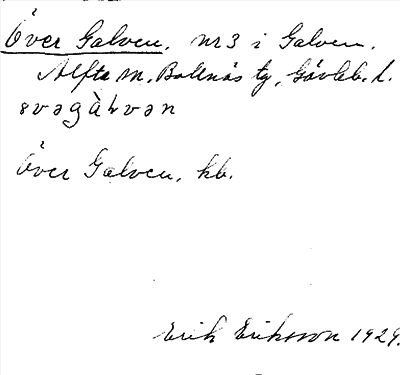 Över Galven, nr 3 i Galven.
Alfta sn, Bollnäs tg, Gävleb. l.
Över Galven, kb.
Erik Eriksson 1929.